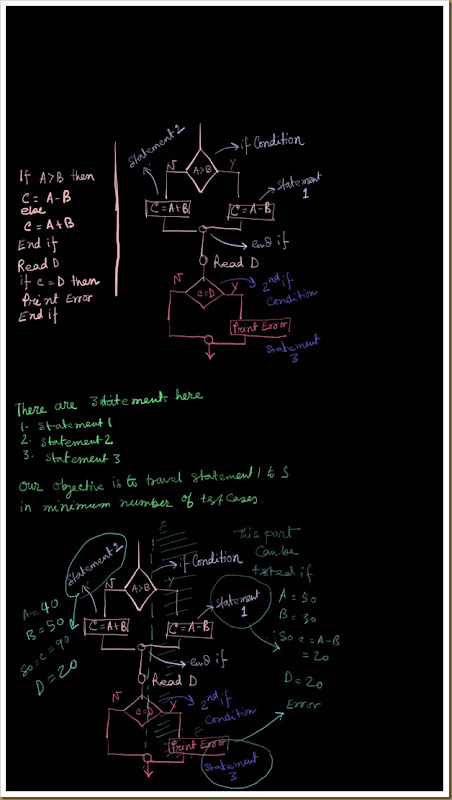 If A>B then
C = A-B
else
C = A+B
End if
Read D
if C=D then
Print Error
End if
Statement 2
if Condition
N
A>B
Y
Statement 1
C=A+B
C=A-B
end if
Read D
N
C=D
Y
2nd if
Condition
Print Error
Statement
3
There are 3 statements here
1. Statement 1
2. Statement 2
3. Statement 3
Our objective is to travel statement 1 to 3
in minimum number of test cases.
This part
can be
tested if
A = 50
B = 30
So C = A-B
= 20
D = 20
Error
Statement 2
if Condition
N
A>B
Y
Statement
1
A=40
B=50
So C=90
D=20
C=A+B
C=A-B
end if
Read D
N
C=D
Y
2nd if
Condition
Print Error
Statement
3